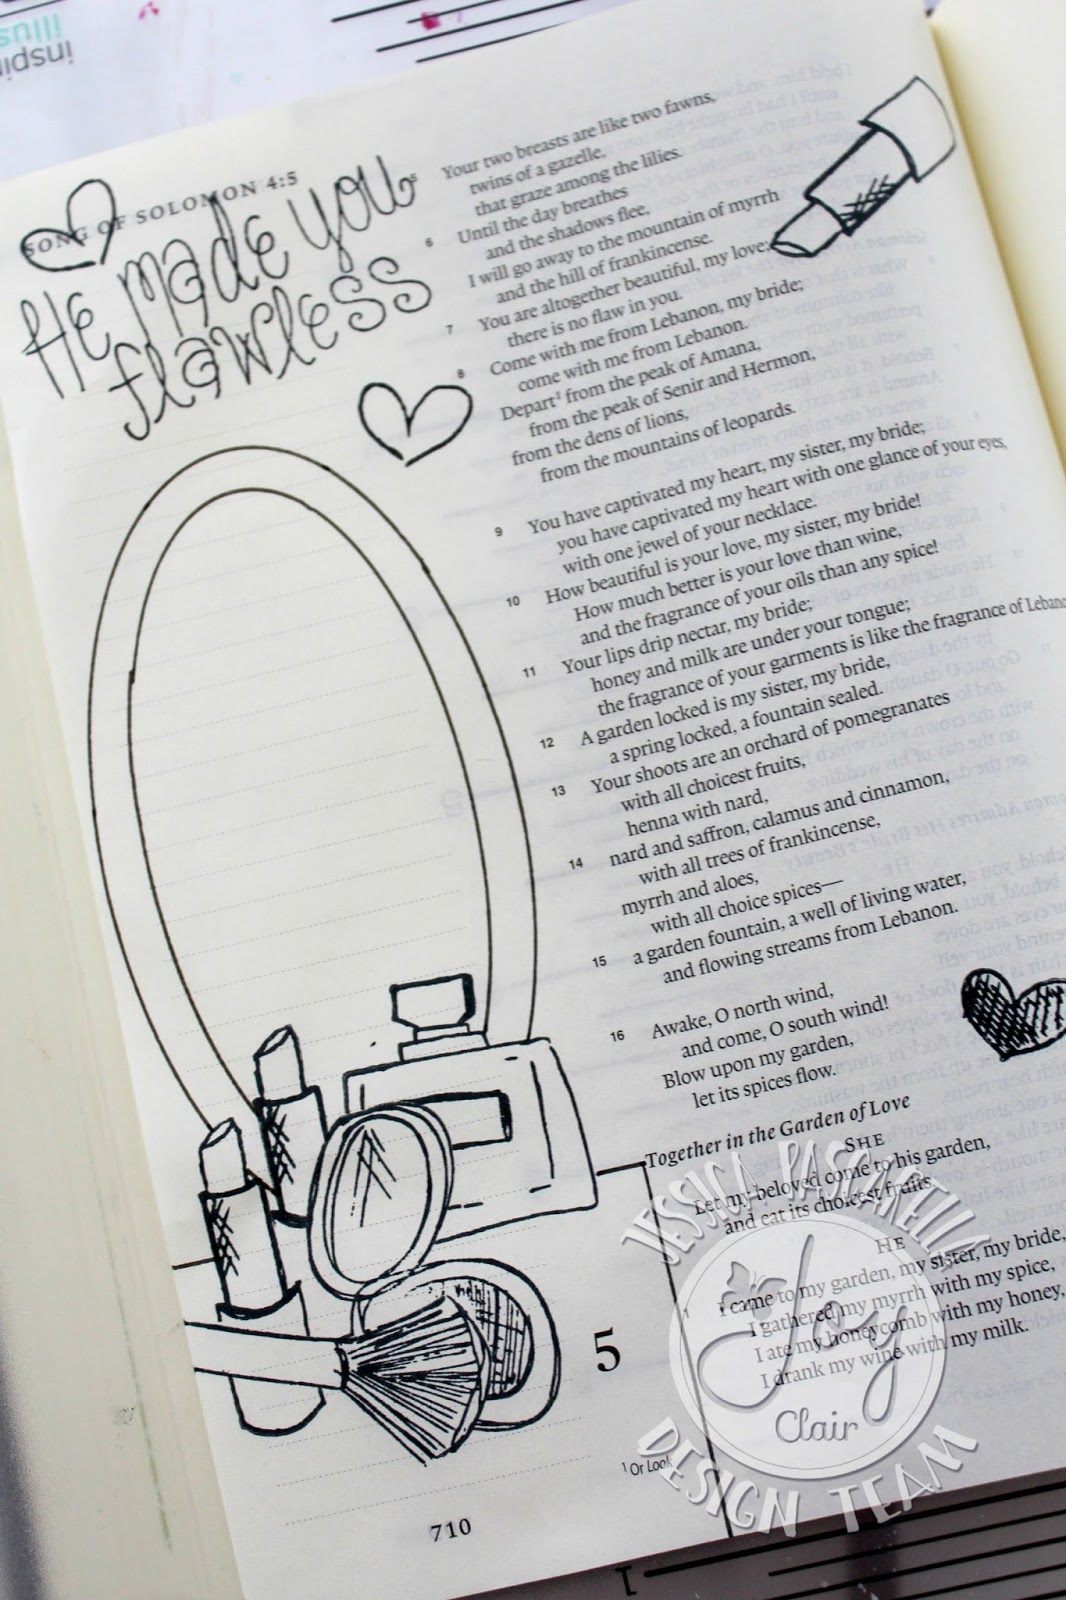 inspir
illus
SONG OF SOLOMON 4:5
He made you
flawless
5 Your two breasts are like two fawns,
twins of a gazelle,
that graze among the lilies.
6 Until the day breathes
and the shadows flee,
I will go away to the mountain of myrrh
and the hill of frankincense.
7 You are altogether beautiful, my love;
there is no flaw in you.
8 Come with me from Lebanon, my bride;
come with me from Lebanon.
Depart¹ from the peak of Amana,
from the peak of Senir and Hermon,
from the dens of lions,
from the mountains of leopards.
9 You have captivated my heart, my sister, my bride;
you have captivated my heart with one glance of your eyes,
with one jewel of your necklace.
10 How beautiful is your love, my sister, my bride!
How much better is your love than wine,
and the fragrance of your oils than any spice!
11 Your lips drip nectar, my bride;
honey and milk are under your tongue;
the fragrance of your garments is like the fragrance of Lebano
12 A garden locked is my sister, my bride,
a spring locked, a fountain sealed.
13 Your shoots are an orchard of pomegranates
with all choicest fruits,
henna with nard,
14 nard and saffron, calamus and cinnamon,
with all trees of frankincense,
myrrh and aloes,
with all choice spices—
15 a garden fountain, a well of living water,
and flowing streams from Lebanon.
16 Awake, O north wind,
and come, O south wind!
Blow upon my garden,
let its spices flow.
Together in the Garden of Love
SHE
Let my beloved come to his garden,
and eat its choicest fruits.
HE
5 1 I came to my garden, my sister, my bride,
I gathered my myrrh with my spice,
I ate my honeycomb with my honey,
I drank my wine with my milk.
¹ Or Look
710
JESSICA PASCARELLA
Joy
Clair
DESIGN TEAM
1